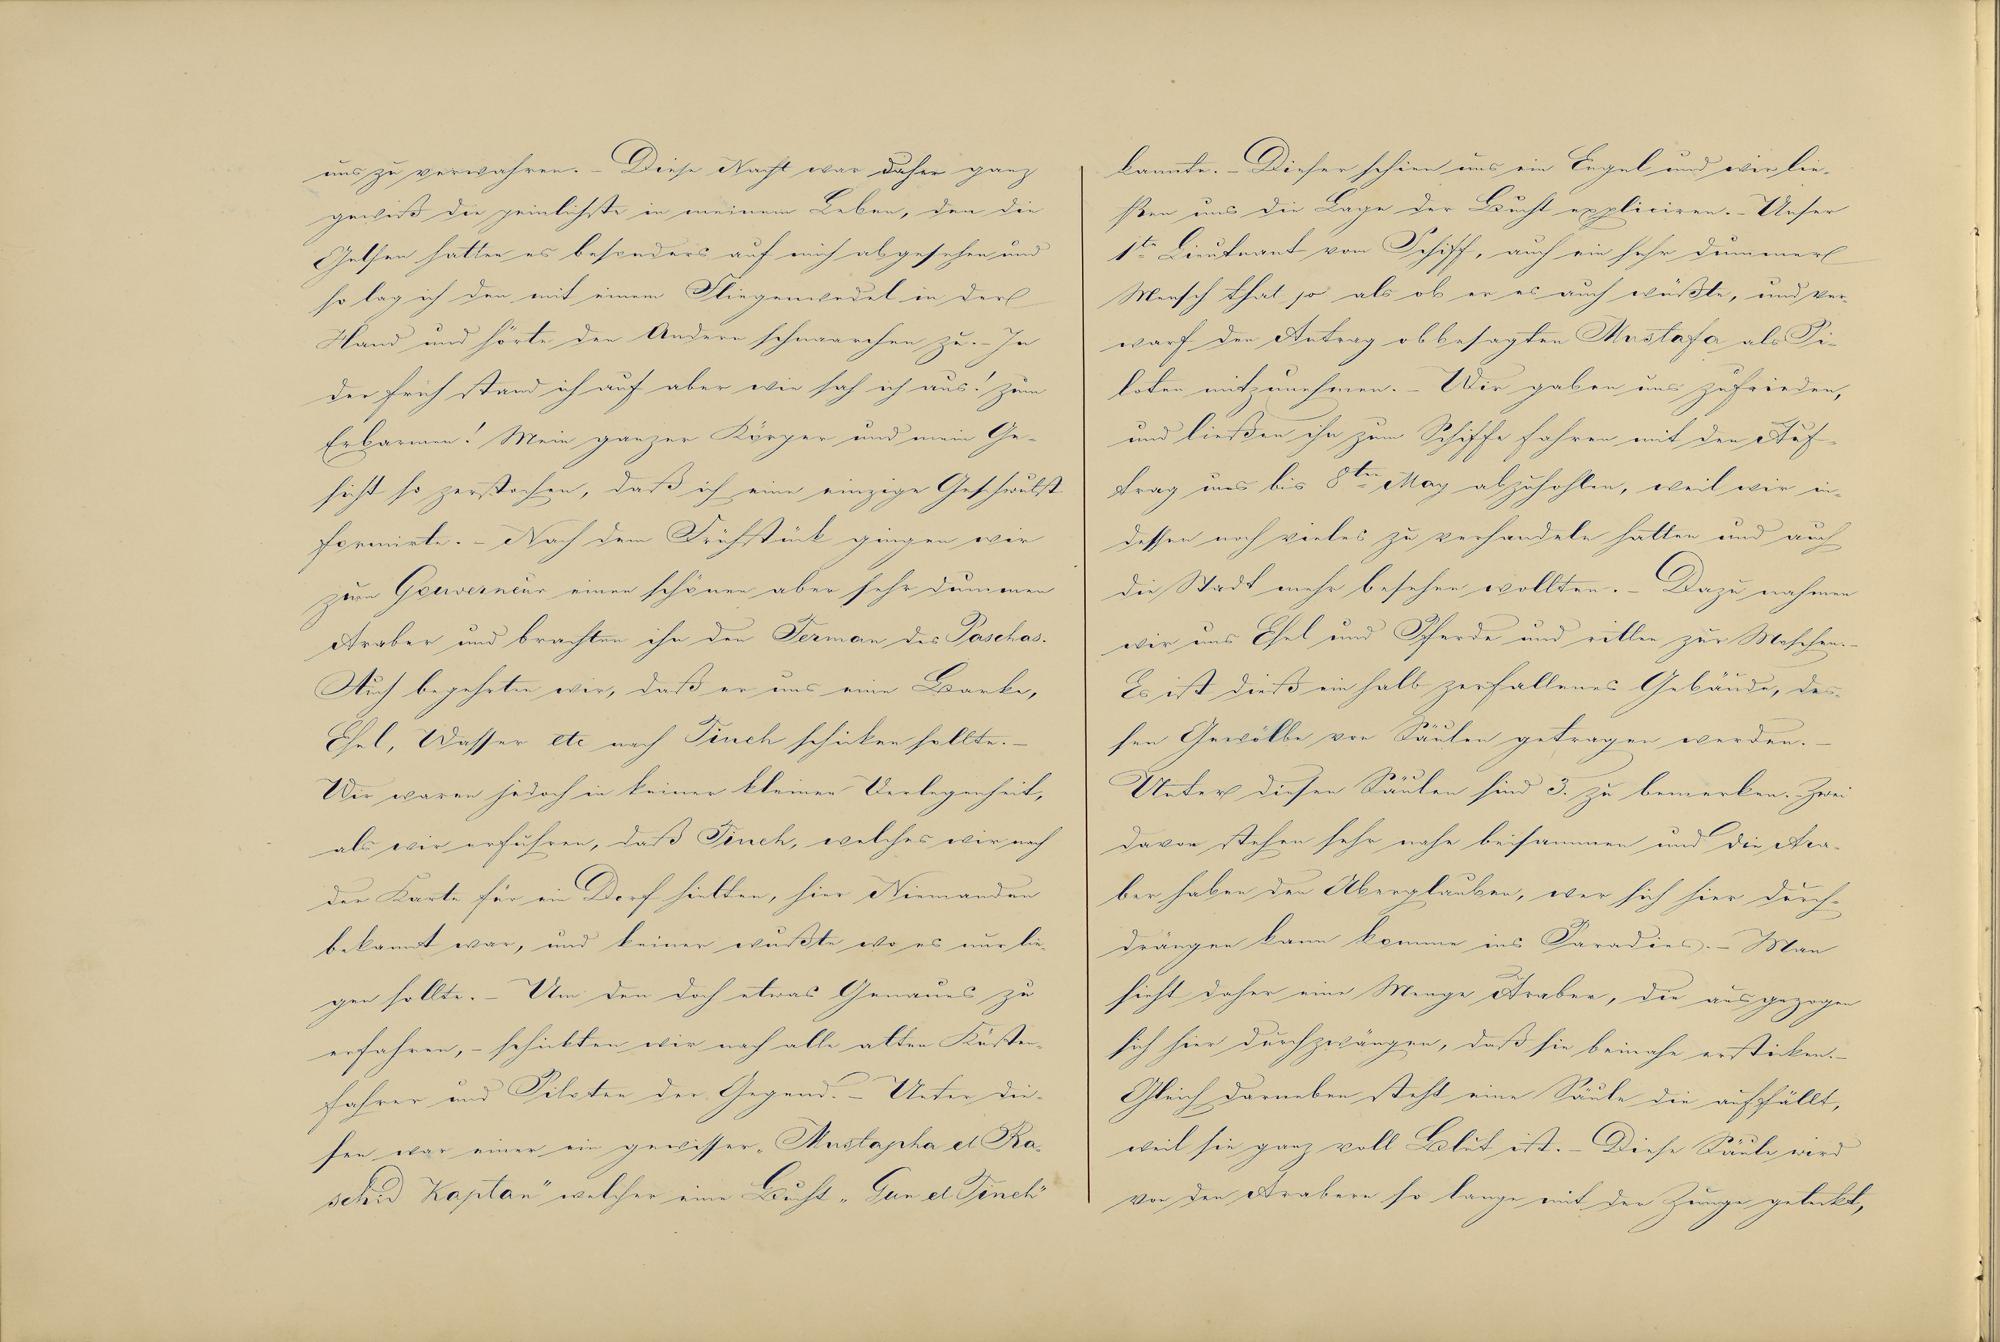 uns zu verwahren. – Diese Nacht war daher ganz
gewiß die peinlichste in meinem Leben, den die
Gelsen hatten es besonders auf mich abgesehen und
so lag ich den mit einem Fliegenwedel in der
Hand und hörte den Andern schnaarchen zu. – In
der früh stand ich auf aber wie sah ich aus! zum
Erbarmen! Mein ganzer Körper und mein Ge-
sicht so zerstochen, daß ich eine einzige Geschwulst
formirte. – Nach dem Frühstück gingen wir
zum Gouverneur einen schönen aber sehr dummen
Araber und brachten ihn den Ferman des Paschas.
Auch begehrten wir, daß er uns eine Barke,
Esel, Wasser etc nach Tineh schicken sollte. –
Wir waren jedoch in keiner kleinen Verlegenheit,
als wir erfuhren, daß Tineh, welches wir nach
der Karte für ein Dorf hielten, hier Niemanden
bekannt war, und keiner wußte wo es nur lie-
gen sollte. – Um den doch etwas Genaues zu
erfahren, – schickten wir nach alle alten Küsten-
fahrer und Piloten der Gegend. – Unter die-
sen war einer ein gewisser „Mustapha el Ra-
schid Kaptan" welcher eine Bucht „Gun el Tineh"
kannte. – Dieser schien uns ein Engel und wir lie-
ßen uns die Lage der Bucht expliciren. – Unser
1te Lieutnant vom Schiff, auch ein sehr dummer
Mensch that so als ob er es auch wüßte, und ver-
warf den Antrag obbesagten Mustafa als Pi-
loten mitzunehmen. – Wir gaben uns zufrieden,
und ließen ihn zum Schiffe fahren mit den Auf-
trag uns bis 8ten May abzuhohlen, weil wir in-
dessen noch vieles zu verhandeln hatten und auch
die Stadt mehr besehen wollten. – Dazu nahmen
wir uns Esel und Pferde und ritten zur Moschee. –
Es ist dieß ein halb zerfallenes Gebäude, des-
sen Gewölbe von Säulen getragen werden. –
Unter diesen Säulen sind 3. zu bemerken. – Zwei
davon stehen sehr nahe beisammen und die Ara-
ber haben den Aberglauben, wer sich hier durch-
drängen kann komme ins Paradies. – Man
sieht daher eine Menge Araber, die ausgezogen
sich hier durchzwängen, daß sie beinahe ersticken. –
Gleich darneben steht eine Säule die auffällt,
weil sie ganz voll Blut ist. – Diese Säule wird
von den Arabern so lange mit der Zunge geleckt,